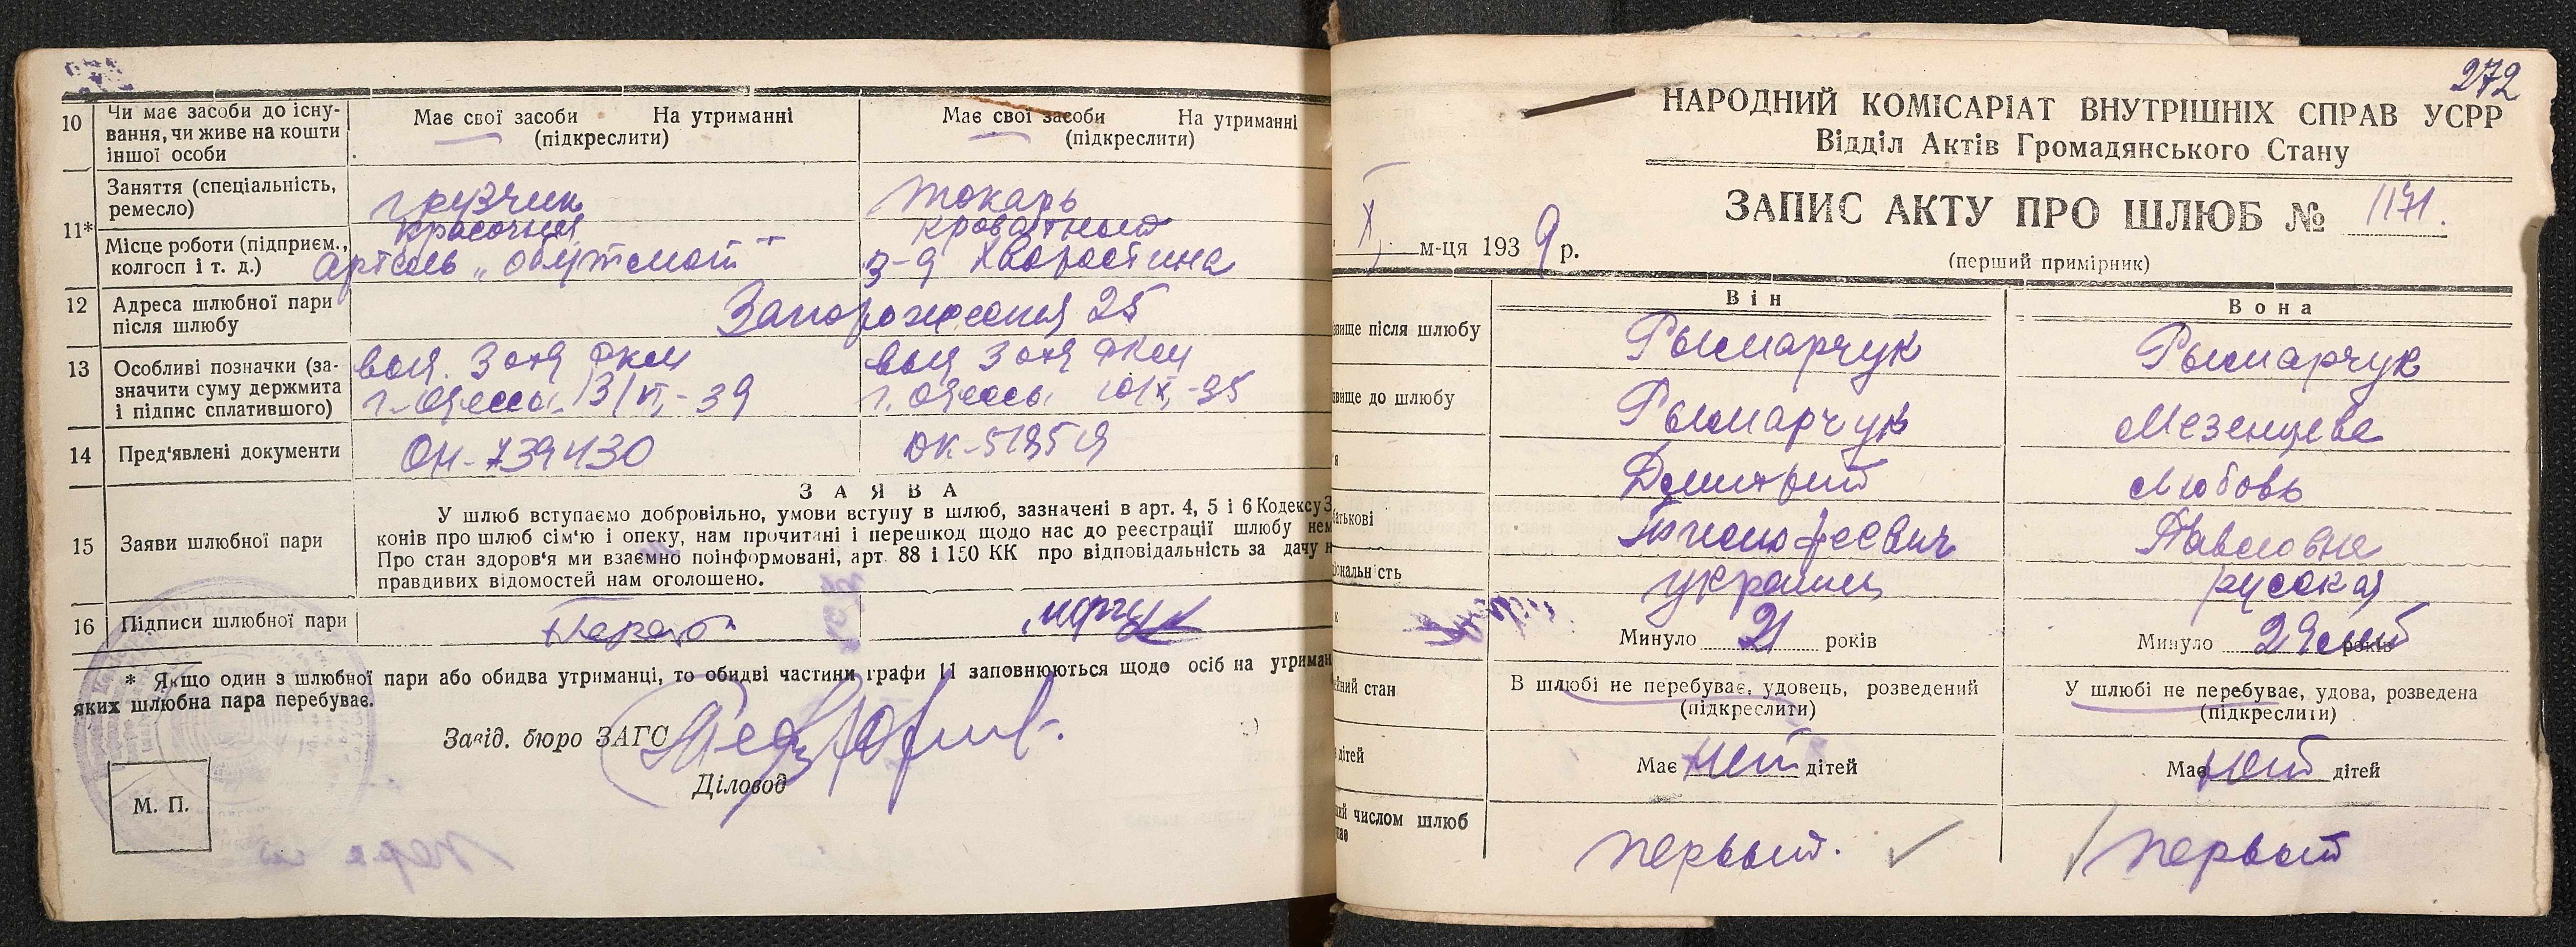 10 Чи має засоби до існу-
вання, чи живе на кошти
іншої особи
Має свої засоби На утриманні
(підкреслити)
Має свої засоби На утриманні
(підкреслити)
11* Заняття (спеціальність,
ремесло)
грузчик
токарь
Місце роботи (підприєм.,
колгосп і т. д.)
артель
кроватный
з-д Хворостина
12 Адреса шлюбної пари
після шлюбу
Запорожская 25
13 Особливі позначки (за-
значити суму держмита
і підпис сплатившого)
выд. 3 отд РКМ
г. Одесса 13/VI-39
выд 3 отд РКМ
г. Одесса
14 Пред'явлені документи
ОН-739430
15 Заяви шлюбної пари
ЗАЯВА
У шлюб вступаємо добровільно, умови вступу в шлюб, зазначені в арт. 4, 5 і 6 Кодексу З
конів про шлюб сім'ю і опеку, нам прочитані і перешкод щодо нас до реєстрації шлюбу нем
Про стан здоров'я ми взаємно поінформовані, арт. 88 і 150 КК про відповідальність за дачу н
правдивих відомостей нам оголошено.
16 Підписи шлюбної пари
* Якщо один з шлюбної пари або обидва утриманці, то обидві частини графи 11 заповнюються щодо осіб на утриман
яких шлюбна пара перебуває.
Завід. бюро ЗАГС
Діловод
М. П.
272
НАРОДНИЙ КОМІСАРІАТ ВНУТРІШНІХ СПРАВ УСРР
Відділ Актів Громадянського Стану
ЗАПИС АКТУ ПРО ШЛЮБ № 1171.
X м-ця 1939 р.
(перший примірник)
Він
Вона
звище після шлюбу
Рымарчук
Рымарчук
звище до шлюбу
Рымарчук
Мезенцева
я
Дмитрий
Любовь
батькові
Тимофеевич
Павловна
ціональність
украинец
русская
к
Минуло 21 років
Минуло років
ейний стан
В шлюбі не перебуває, удовець, розведений
(підкреслити)
У шлюбі не перебуває, удова, розведена
(підкреслити)
дітей
Має нет дітей
Має нет дітей
кий числом шлюб
первый.
первый